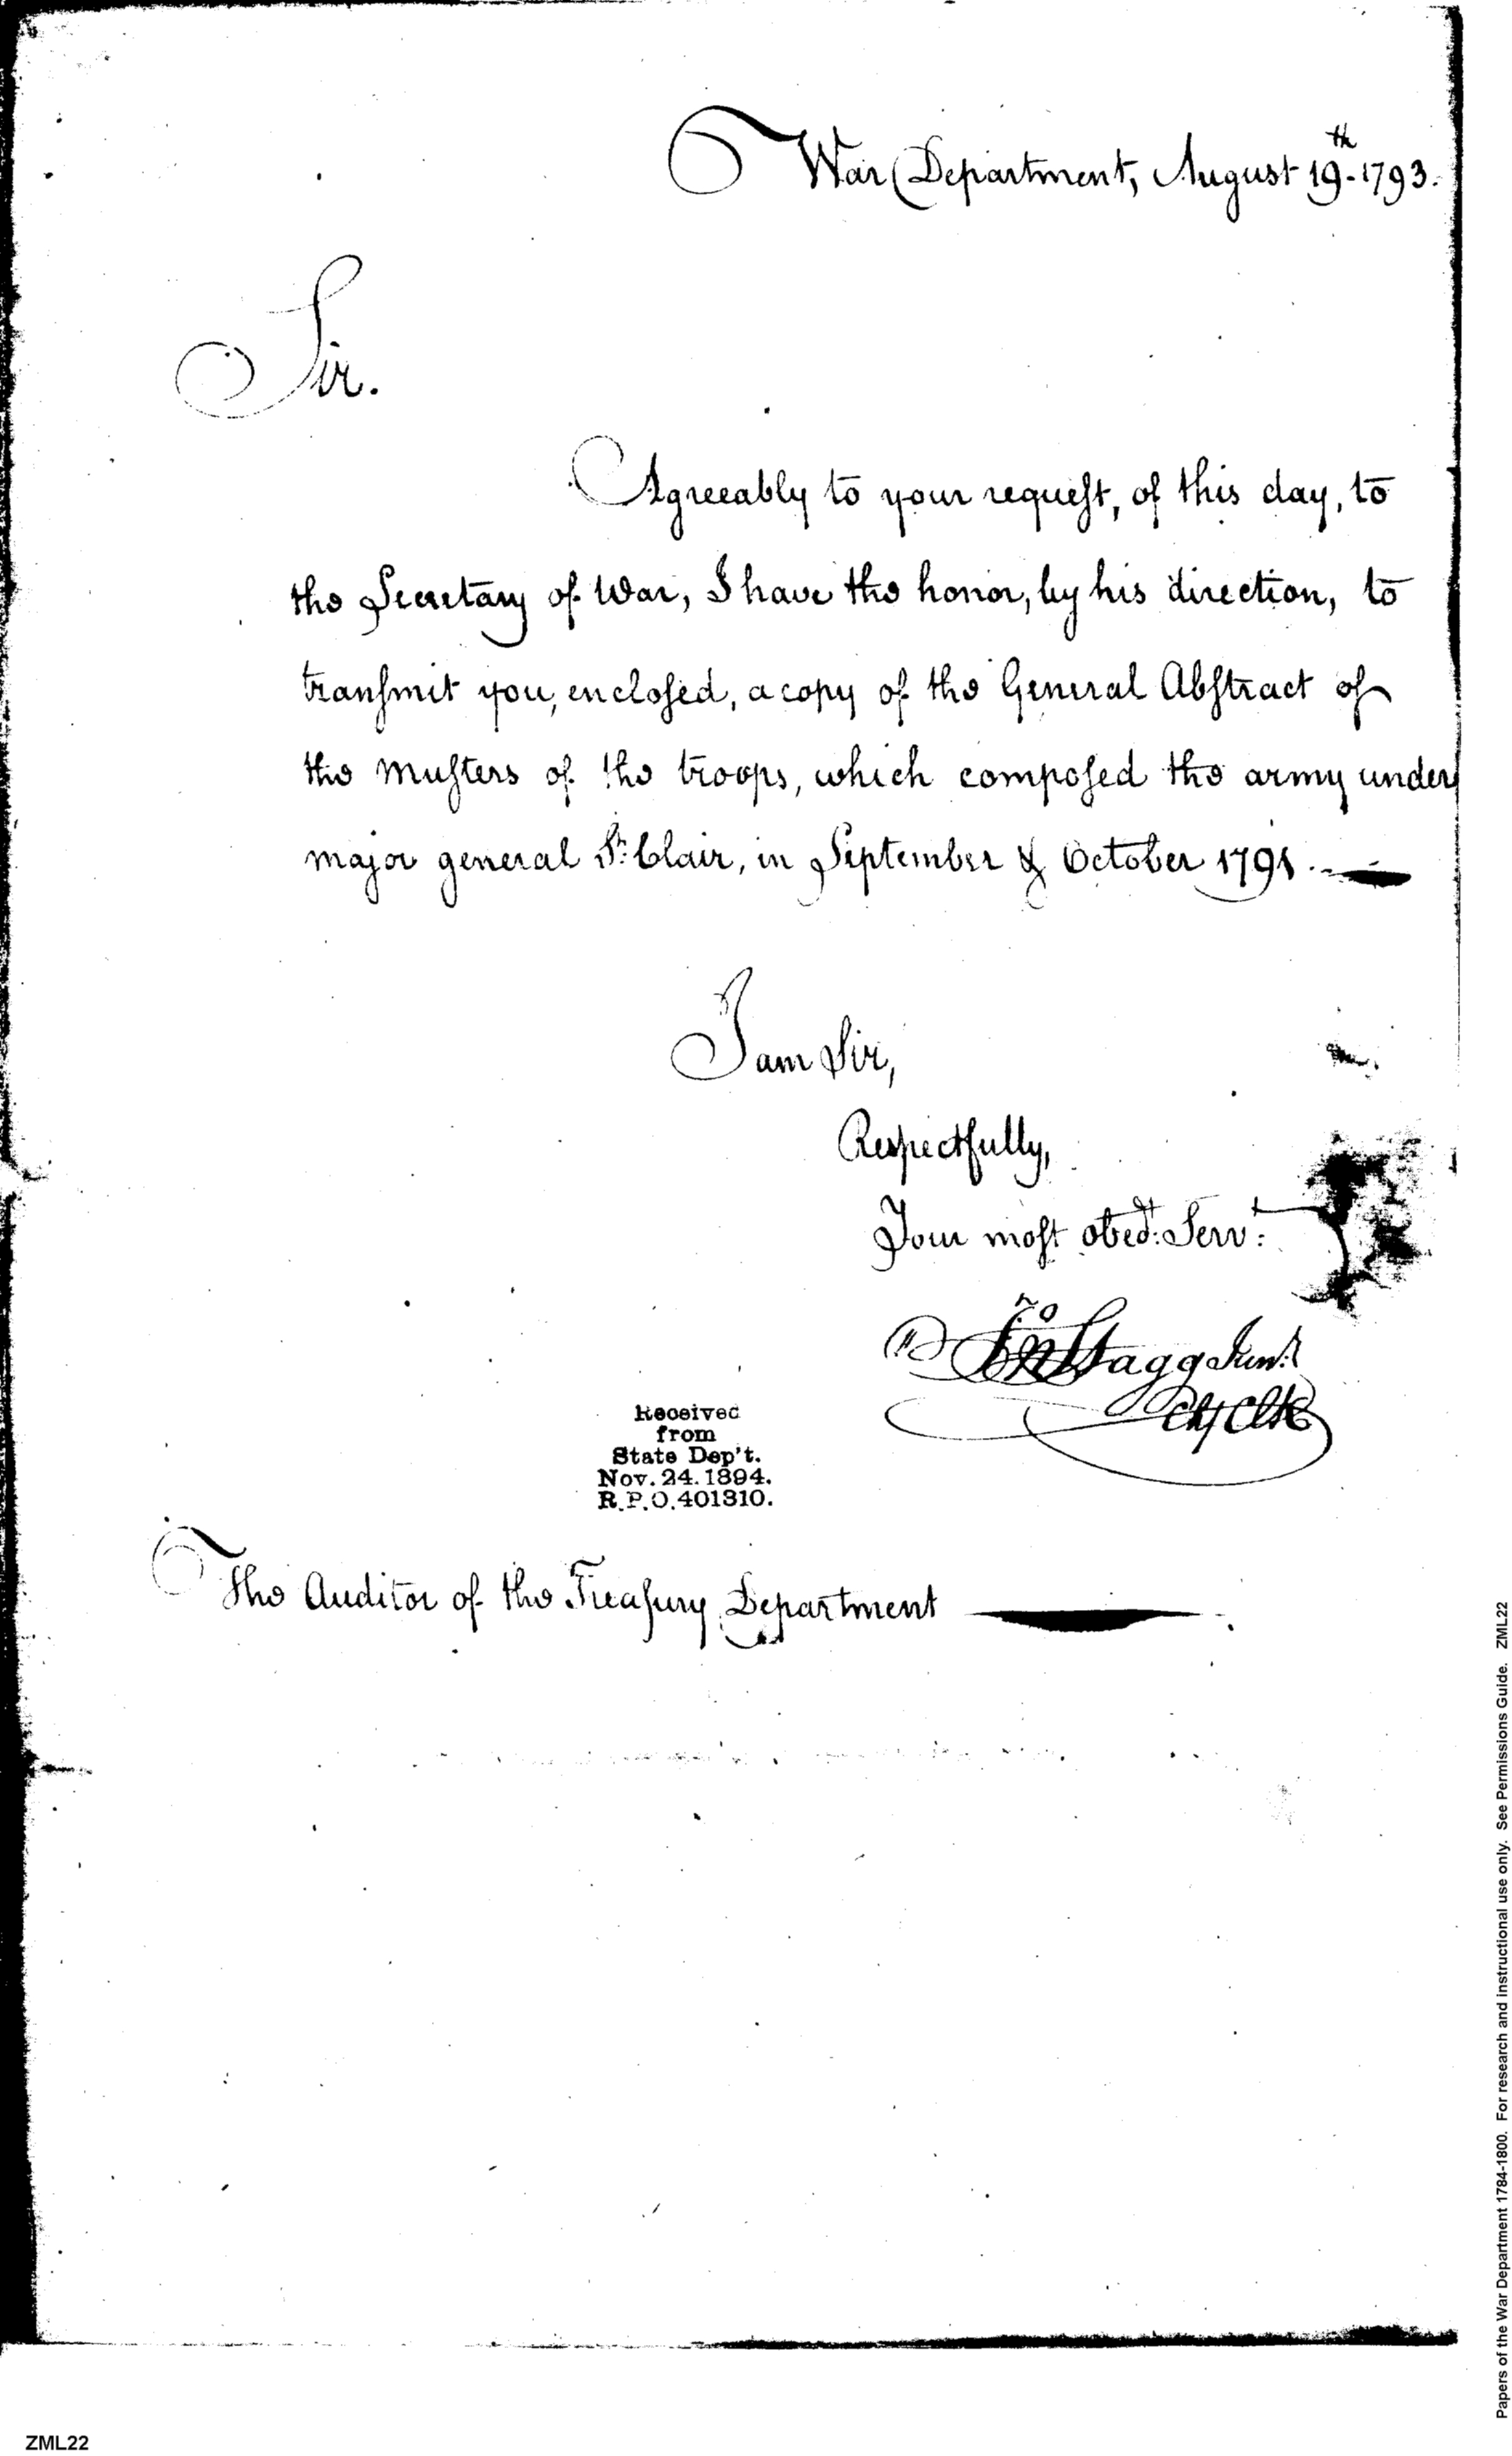 War Department, August 19th 1793.
Sir.
Agreeably to your request, of this day, to
the Secretary of War, I have the honor, by his direction, to
transmit you, enclosed, a copy of the General Abstract of
the musters of the troops, which composed the army under
major general St. Clair, in September & October 1791.
I am Sir,
Respectfully,
Your most obedt. Servt.
Jno Stagg Junr.
Ch. Clk
Received
from
State Dep't.
Nov. 24. 1894.
R.P.O. 401310.
The Auditor of the Treasury Department
ZML22
Papers of the War Department 1784-1800. For research and instructional use only. See Permissions Guide. ZML22